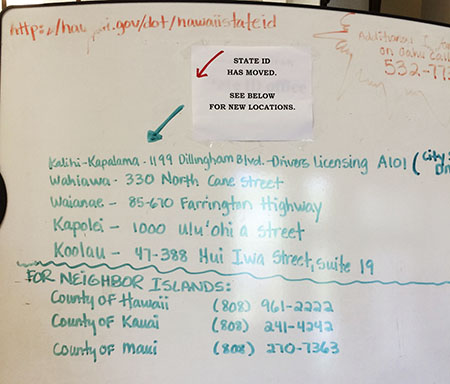 http://hawaii.gov/dot/hawaiistateid
Additional Info
on Oahu Call
532-77
STATE ID
HAS MOVED.
SEE BELOW
FOR NEW LOCATIONS.
Kalihi-Kapalama - 1199 Dillingham Blvd. - Drivers Licensing A101 (City
Wahiawa - 330 North Cane Street
Waianae - 85-670 Farrington Highway
Kapolei - 1000 Ulu'ohi'a Street
Koolau - 47-388 Hui Iwa Street, Suite 19
FOR NEIGHBOR ISLANDS:
County of Hawaii (808) 961-2222
County of Kauai (808) 241-4242
County of Maui (808) 270-7363